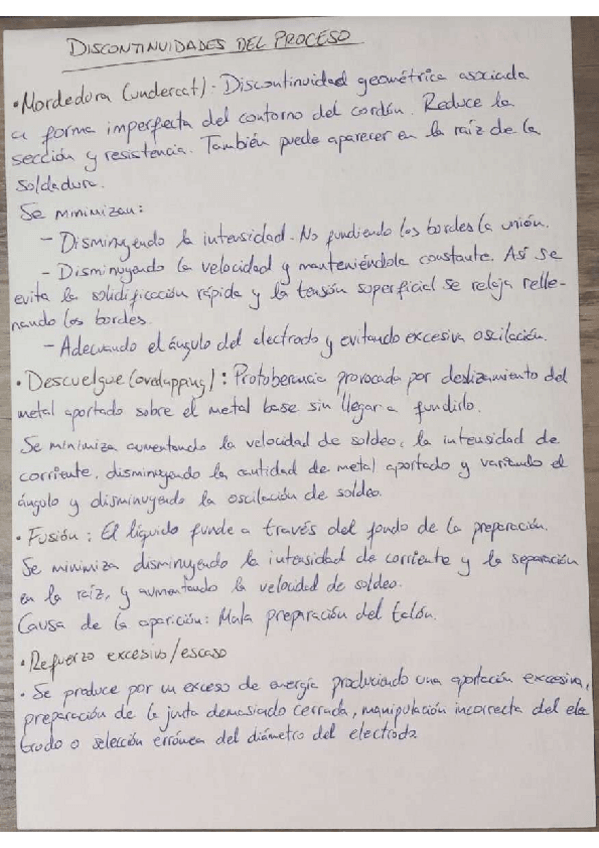 DISCONTINUIDADES DEL PROCESO
• Mordedora (undercut). Discontinuidad geométrica asociada
a forma imperfecta del contorno del cordón. Reduce la
sección y resistencia. También puede aparecer en la raíz de la
soldadura.
Se minimizan:
- Disminuyendo la intensidad. No fundiendo los bordes la unión.
- Disminuyendo la velocidad y manteniéndola constante. Así se
evita la solidificación rápida y la tensión superficial se relaja relle-
nando los bordes.
- Adecuando el ángulo del electrodo y evitando excesiva oscilación.
• Descuelgue (overlapping): Protoberancia provocada por deslizamiento del
metal aportado sobre el metal base sin llegar a fundirlo.
Se minimiza aumentando la velocidad de soldeo, la intensidad de
corriente, disminuyendo la cantidad de metal aportado y variando el
ángulo y disminuyendo la oscilación de soldeo.
• Fusión: El líquido funde a través del fondo de la preparación.
Se minimiza disminuyendo la intensidad de corriente y la separación
en la raíz, y aumentando la velocidad de soldeo.
Causa de la aparición: Mala preparación del talón.
• Refuerzo excesivo/escaso
• Se produce por un exceso de energía produciendo una aportación excesiva,
preparación de la junta demasiado cerrada, manipulación incorrecta del elec
trodo o selección errónea del diámetro del electrodo.